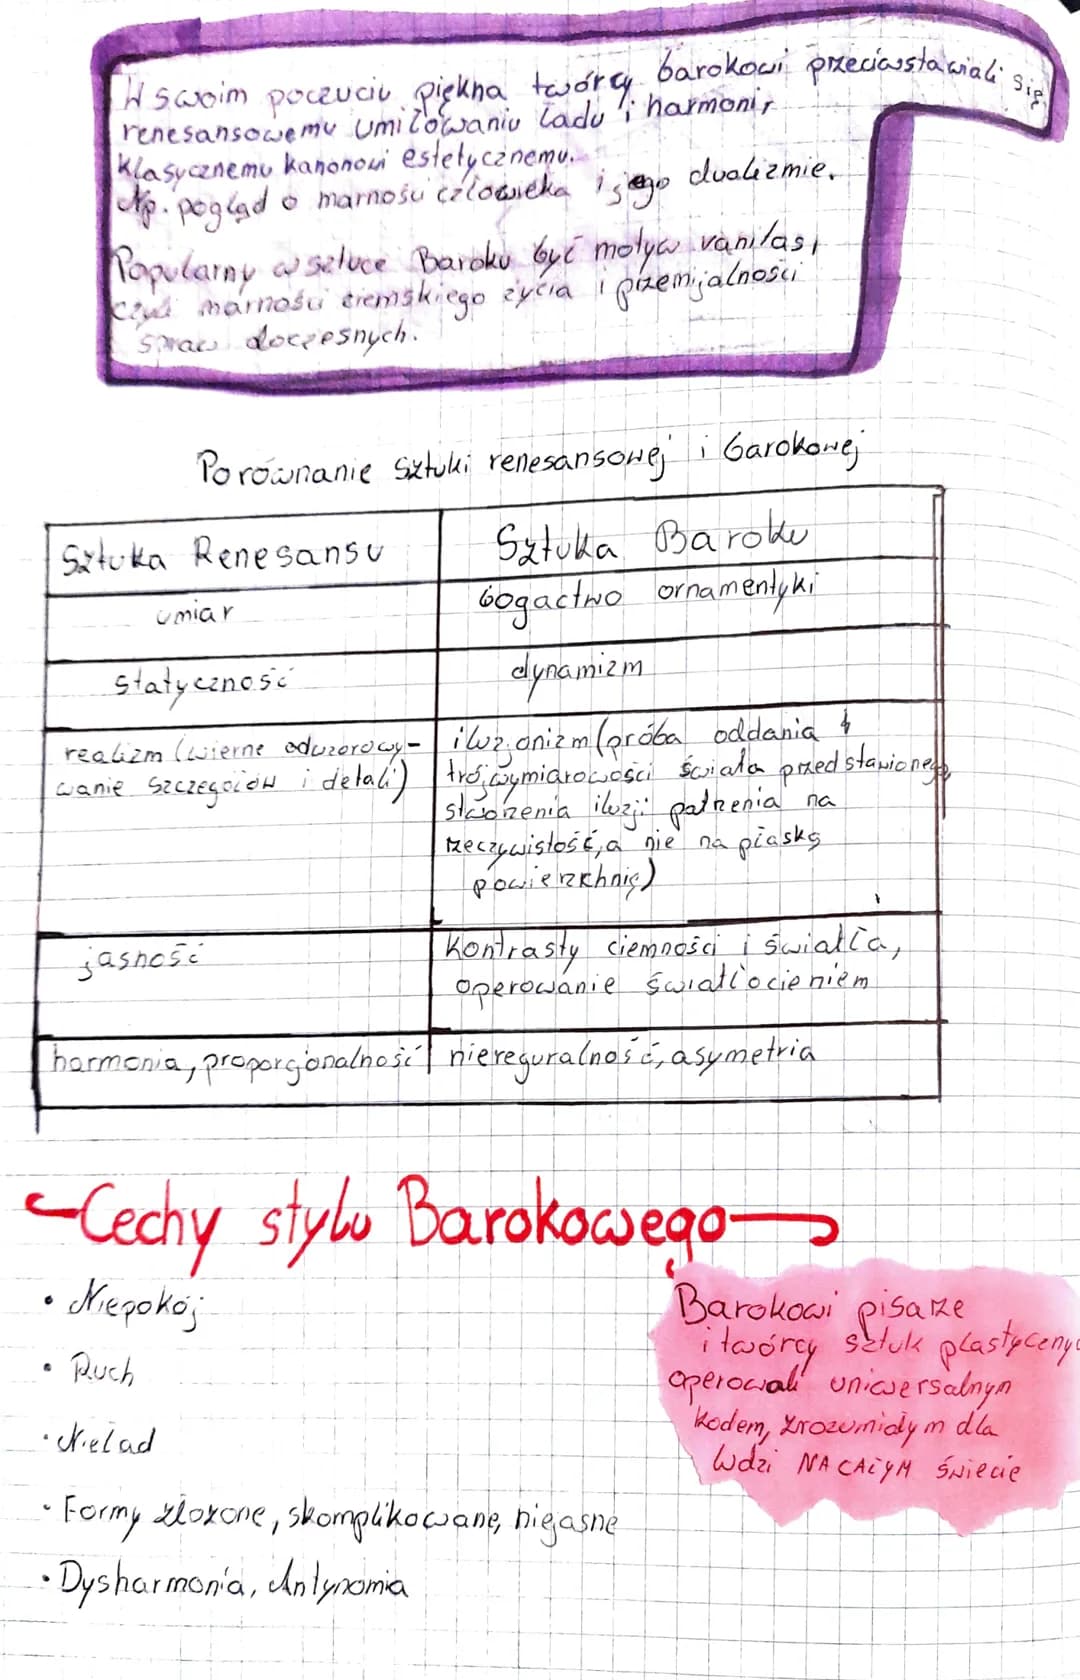 W swoim poczuciu piękna twórcy barokowi przeciwstawiali się
renesansowemu umiłowaniu ładu i harmonii,
klasycznemu kanonowi estetycznemu.
Np. pogląd o marności człowieka i jego dualizmie.
Popularny w sztuce Baroku być motyw vanitas,
czyli marności ziemskiego życia i przemijalności
spraw doczesnych.
Porównanie sztuki renesansowej i barokowej
Sztuka Renesansu
Sztuka Baroku
umiar
bogactwo ornamentyki
statyczność
dynamizm
realizm (wierne odwzorowy-
wanie szczegółów i detali)
iluzjonizm (próba oddania
trójwymiarowości świata przedstawionego,
stworzenia iluzji patrzenia na
rzeczywistość, a nie na płaską
powierzchnię)
jasność
kontrasty ciemności i światła,
operowanie światłocieniem
harmonia, proporcjonalność
niereguralność, asymetria
Cechy stylu Barokowego
• Niepokój
• Ruch
• Nieład
• Formy złożone, skomplikowane, niejasne
• Dysharmonia, Antynomia
Barokowi pisarze
i twórcy sztuk plastyczny
operowali uniwersalnym
kodem, zrozumiałym dla
ludzi NA CAŁYM świecie